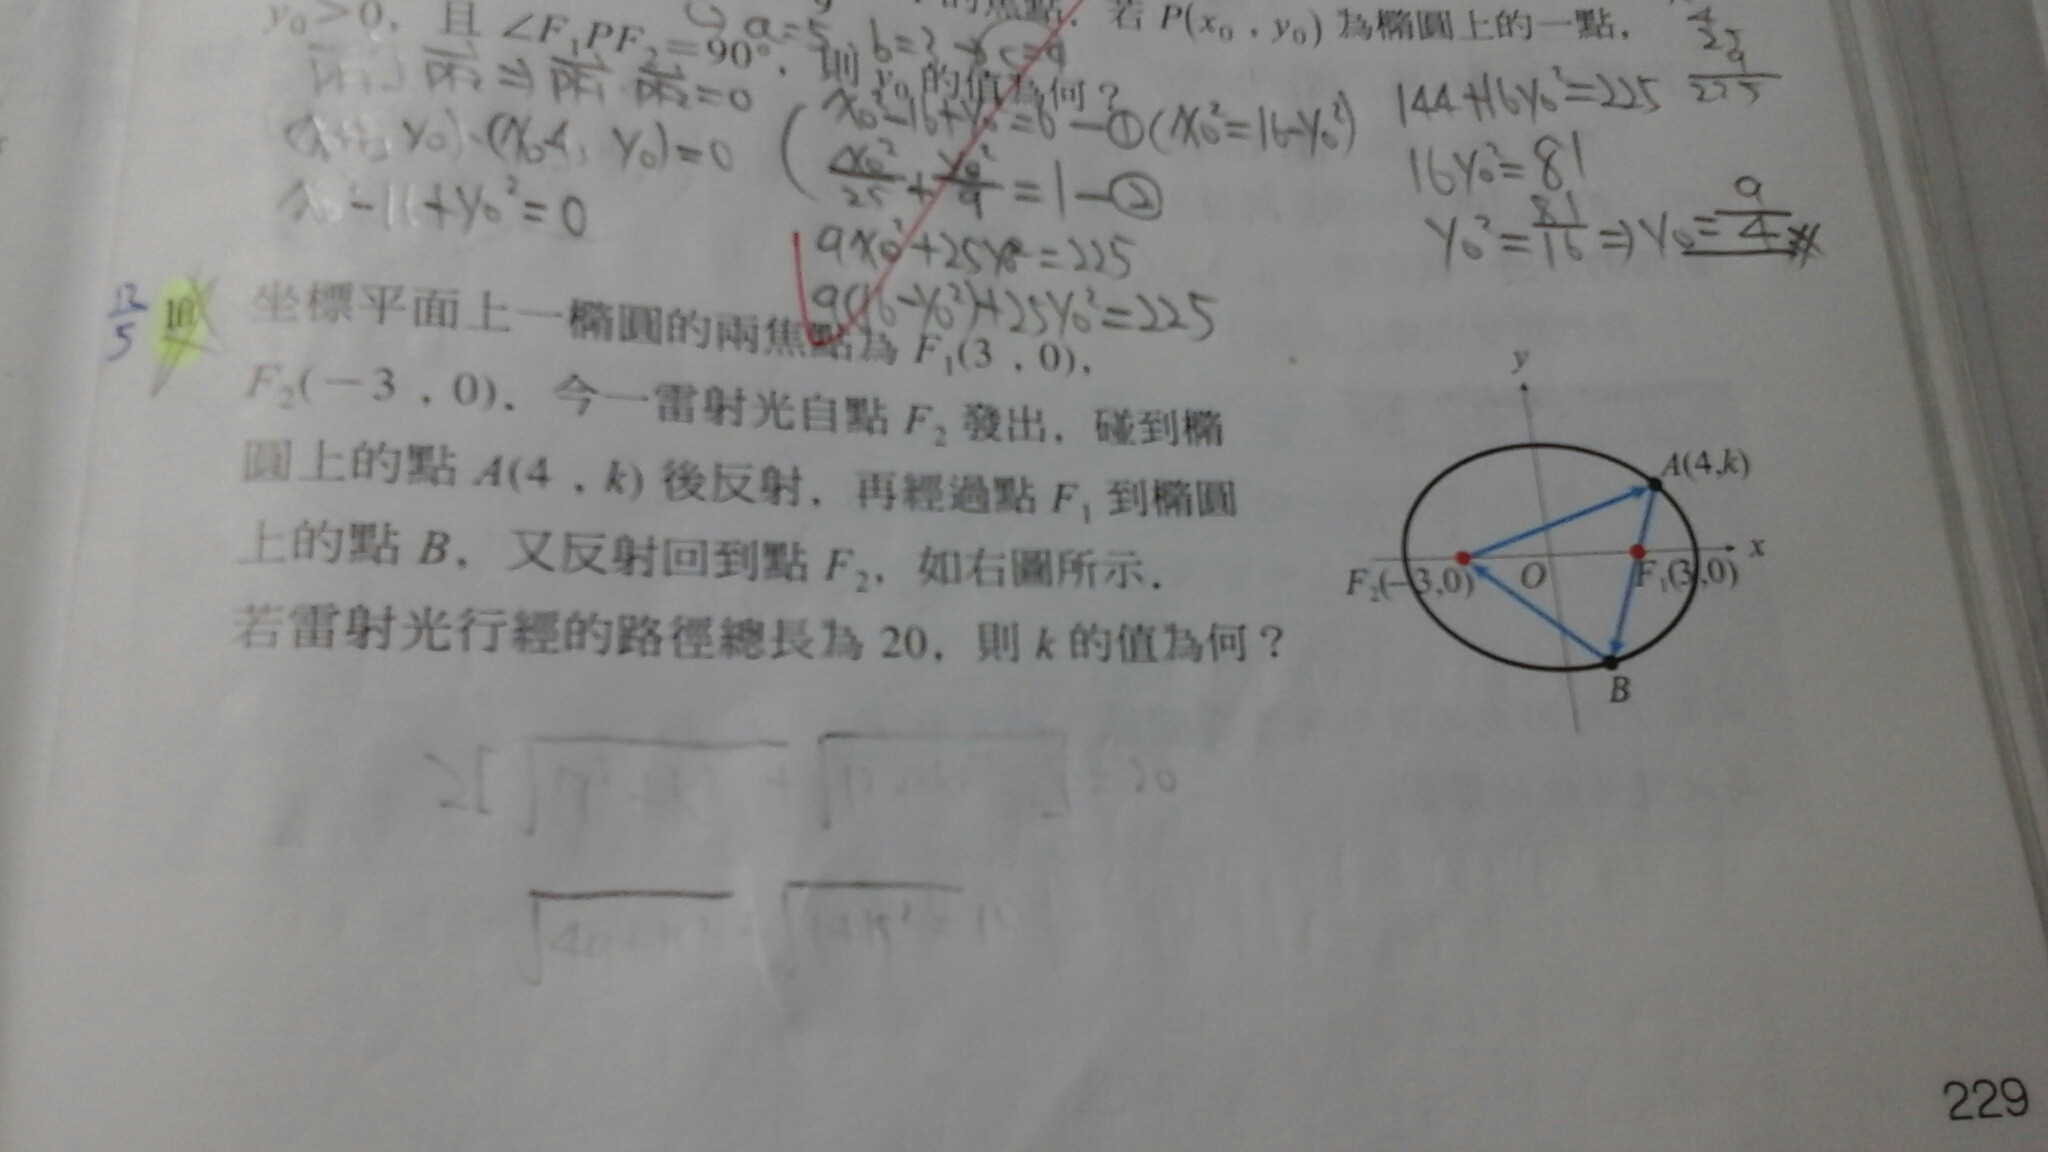 的焦點．若 P(x₀，y₀) 為橢圓上的一點，
y₀＞0，且 ∠F₁PF₂＝90°，則 y₀ 的值為何？
a=5 b=3
PF₂ ⇒ PF₁·PF₂=0
y₀)·(x₀-4, y₀)=0
+y₀²=0
①(x₀²=16-y₀²)
x₀²/25+y₀²/9=1-②
9x₀²+25y₀²=225
9(16-y₀²)+25y₀²=225
144+16y₀²=225
16y₀²=81
y₀²=81/16⇒y₀=9/4
4
25
9
225
12/5
10
坐標平面上一橢圓的兩焦點為 F₁(3，0)，
F₂(−3，0)．今一雷射光自點 F₂ 發出，碰到橢
圓上的點 A(4，k) 後反射，再經過點 F₁ 到橢圓
上的點 B，又反射回到點 F₂，如右圖所示．
若雷射光行經的路徑總長為 20，則 k 的值為何？
y
A(4,k)
x
F₂(−3,0)
O
F₁(3,0)
B
=20
229